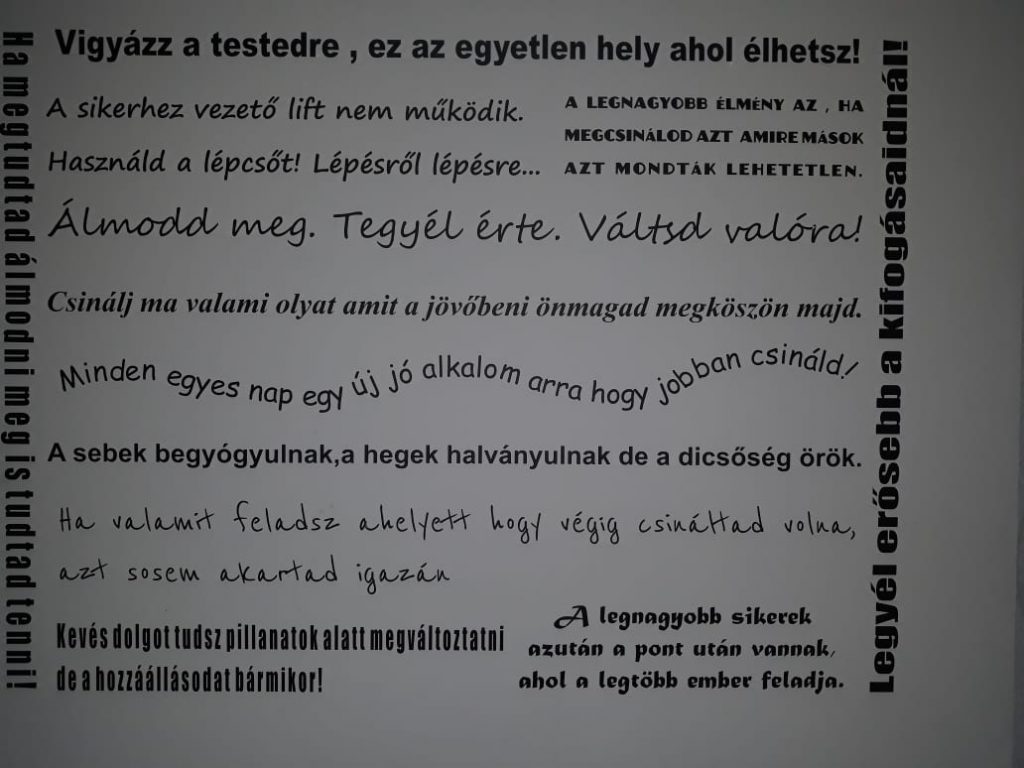 Ha megtudtad álmodni meg is tudtad tenni!
Vigyázz a testedre , ez az egyetlen hely ahol élhetsz!
A sikerhez vezető lift nem működik.
Használd a lépcsőt! Lépésről lépésre...
A LEGNAGYOBB ÉLMÉNY AZ , HA
MEGCSINÁLOD AZT AMIRE MÁSOK
AZT MONDTÁK LEHETETLEN.
Álmodd meg. Tegyél érte. Váltsd valóra!
Csinálj ma valami olyat amit a jövőbeni önmagad megköszön majd.
Minden egyes nap egy új jó alkalom arra hogy jobban csináld!
A sebek begyógyulnak,a hegek halványulnak de a dicsőség örök.
Ha valamit feladsz ahelyett hogy végig csináltad volna,
azt sosem akartad igazán
Kevés dolgot tudsz pillanatok alatt megváltoztatni
de a hozzáállásodat bármikor!
A legnagyobb sikerek
azután a pont után vannak,
ahol a legtöbb ember feladja.
Legyél erősebb a kifogásaidnál!